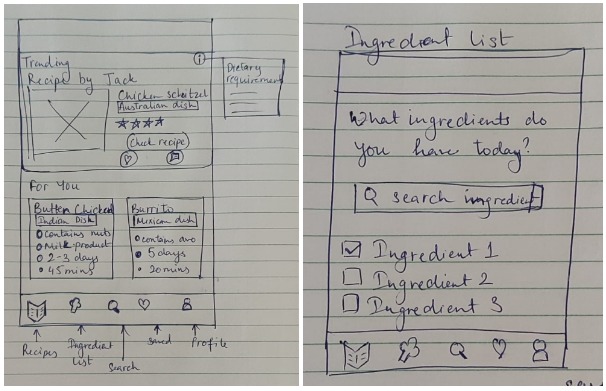 Trending
Recipe by Jack
Chicken scheitzel
Australian dish
Check recipe
Dietary
requirement
For You
Butter Chicken
Indian Dish
contains nuts
Milk product
2-3 days
45 mins
Burrito
Mexican dish
contains avo
5 days
20 mins
Recipes
Ingredient
List
Search
Saved
Profile
Ingredient List
What ingredients do
you have today?
search ingredient
Ingredient 1
Ingredient 2
Ingredient 3